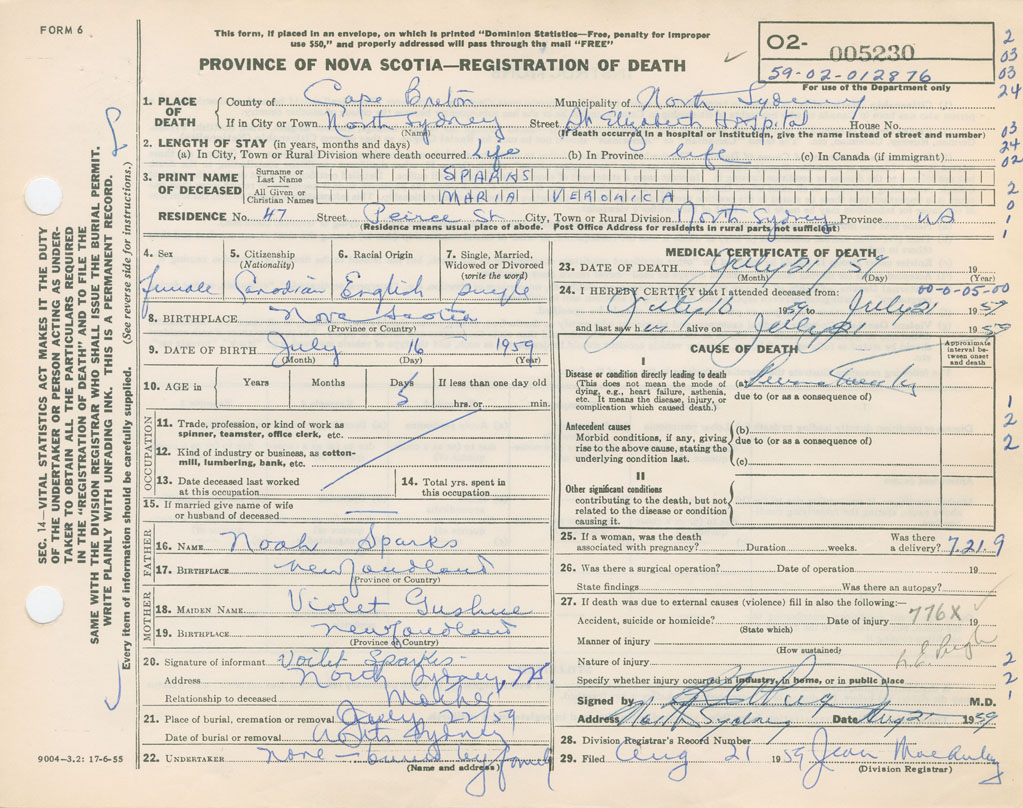 FORM 6
This form, if placed in an envelope, on which is printed "Dominion Statistics—Free, penalty for improper
use $50," and properly addressed will pass through the mail "FREE"
PROVINCE OF NOVA SCOTIA—REGISTRATION OF DEATH
O2- 005230
59-02-012876
For use of the Department only
2
03
03
24
03
24
02
2
0
1
1
1
2
2
2
2
1
SEC. 14—VITAL STATISTICS ACT MAKES IT THE DUTY
OF THE UNDERTAKER OR PERSON ACTING AS UNDER-
TAKER TO OBTAIN ALL THE PARTICULARS REQUIRED
IN THE "REGISTRATION OF DEATH" AND TO FILE THE
SAME WITH THE DIVISION REGISTRAR WHO SHALL ISSUE THE BURIAL PERMIT.
WRITE PLAINLY WITH UNFADING INK. THIS IS A PERMANENT RECORD.
Every item of information should be carefully supplied. (See reverse side for instructions.)
1. PLACE OF DEATH County of Cape Breton Municipality of North Sydney
If in City or Town North Sydney Street St Elizabeth Hospital House No.
(Name) (If death occurred in a hospital or institution, give the name instead of street and number)
2. LENGTH OF STAY (in years, months and days)
(a) In City, Town or Rural Division where death occurred Life (b) In Province life (c) In Canada (if immigrant)
3. PRINT NAME OF DECEASED Surname or Last Name SPARKS
All Given or Christian Names MARIA VERONICA
RESIDENCE No. 47 Street Peirce St City, Town or Rural Division North Sydney Province NS
(Residence means usual place of abode. Post Office Address for residents in rural parts not sufficient)
4. Sex female
5. Citizenship (Nationality) Canadian
6. Racial Origin English
7. Single, Married, Widowed or Divorced (write the word) single
8. BIRTHPLACE Nova Scotia
(Province or Country)
9. DATE OF BIRTH July 16 1959
(Month) (Day) (Year)
10. AGE in Years Months Days 5 If less than one day old hrs. or min.
OCCUPATION
11. Trade, profession, or kind of work as spinner, teamster, office clerk, etc.
12. Kind of industry or business, as cotton-mill, lumbering, bank, etc.
13. Date deceased last worked at this occupation
14. Total yrs. spent in this occupation
15. If married give name of wife or husband of deceased
FATHER
16. NAME Noah Sparks
17. BIRTHPLACE newfoundland
(Province or Country)
MOTHER
18. MAIDEN NAME Violet Gushue
19. BIRTHPLACE newfoundland
(Province or Country)
20. Signature of informant Voilet Sparks
Address North Sydney, NS.
Relationship to deceased Mother
21. Place of burial, cremation or removal July 22/59
Date of burial or removal North Sydney
22. UNDERTAKER none - buried by family
(Name and address)
9004—3.2: 17-6-55
MEDICAL CERTIFICATE OF DEATH
23. DATE OF DEATH July 21/59 19
(Month) (Day) (Year)
24. I HEREBY CERTIFY that I attended deceased from: 00-0-05-00
July 16 1959 to July 21 1959
and last saw h alive on July 21 1959
CAUSE OF DEATH
Approximate interval between onset and death
I
Disease or condition directly leading to death
(This does not mean the mode of dying, e.g., heart failure, asthenia, etc. It means the disease, injury, or complication which caused death.)
(a) Prematurity
due to (or as a consequence of)
Antecedent causes
Morbid conditions, if any, giving rise to the above cause, stating the underlying condition last.
(b)
due to (or as a consequence of)
(c)
II
Other significant conditions
contributing to the death, but not related to the disease or condition causing it.
25. If a woman, was the death associated with pregnancy? Duration weeks. Was there a delivery? 7.21.9
26. Was there a surgical operation? Date of operation 19
State findings Was there an autopsy?
27. If death was due to external causes (violence) fill in also the following:—
Accident, suicide or homicide? Date of injury 19
776X
(State which)
Manner of injury
(How sustained)
Nature of injury
Specify whether injury occurred in industry, in home, or in public place
Signed by M.D.
Address North Sydney Date Aug 21 1959
28. Division Registrar's Record Number
29. Filed Aug 21 1959 Jean MacAulay
(Division Registrar)